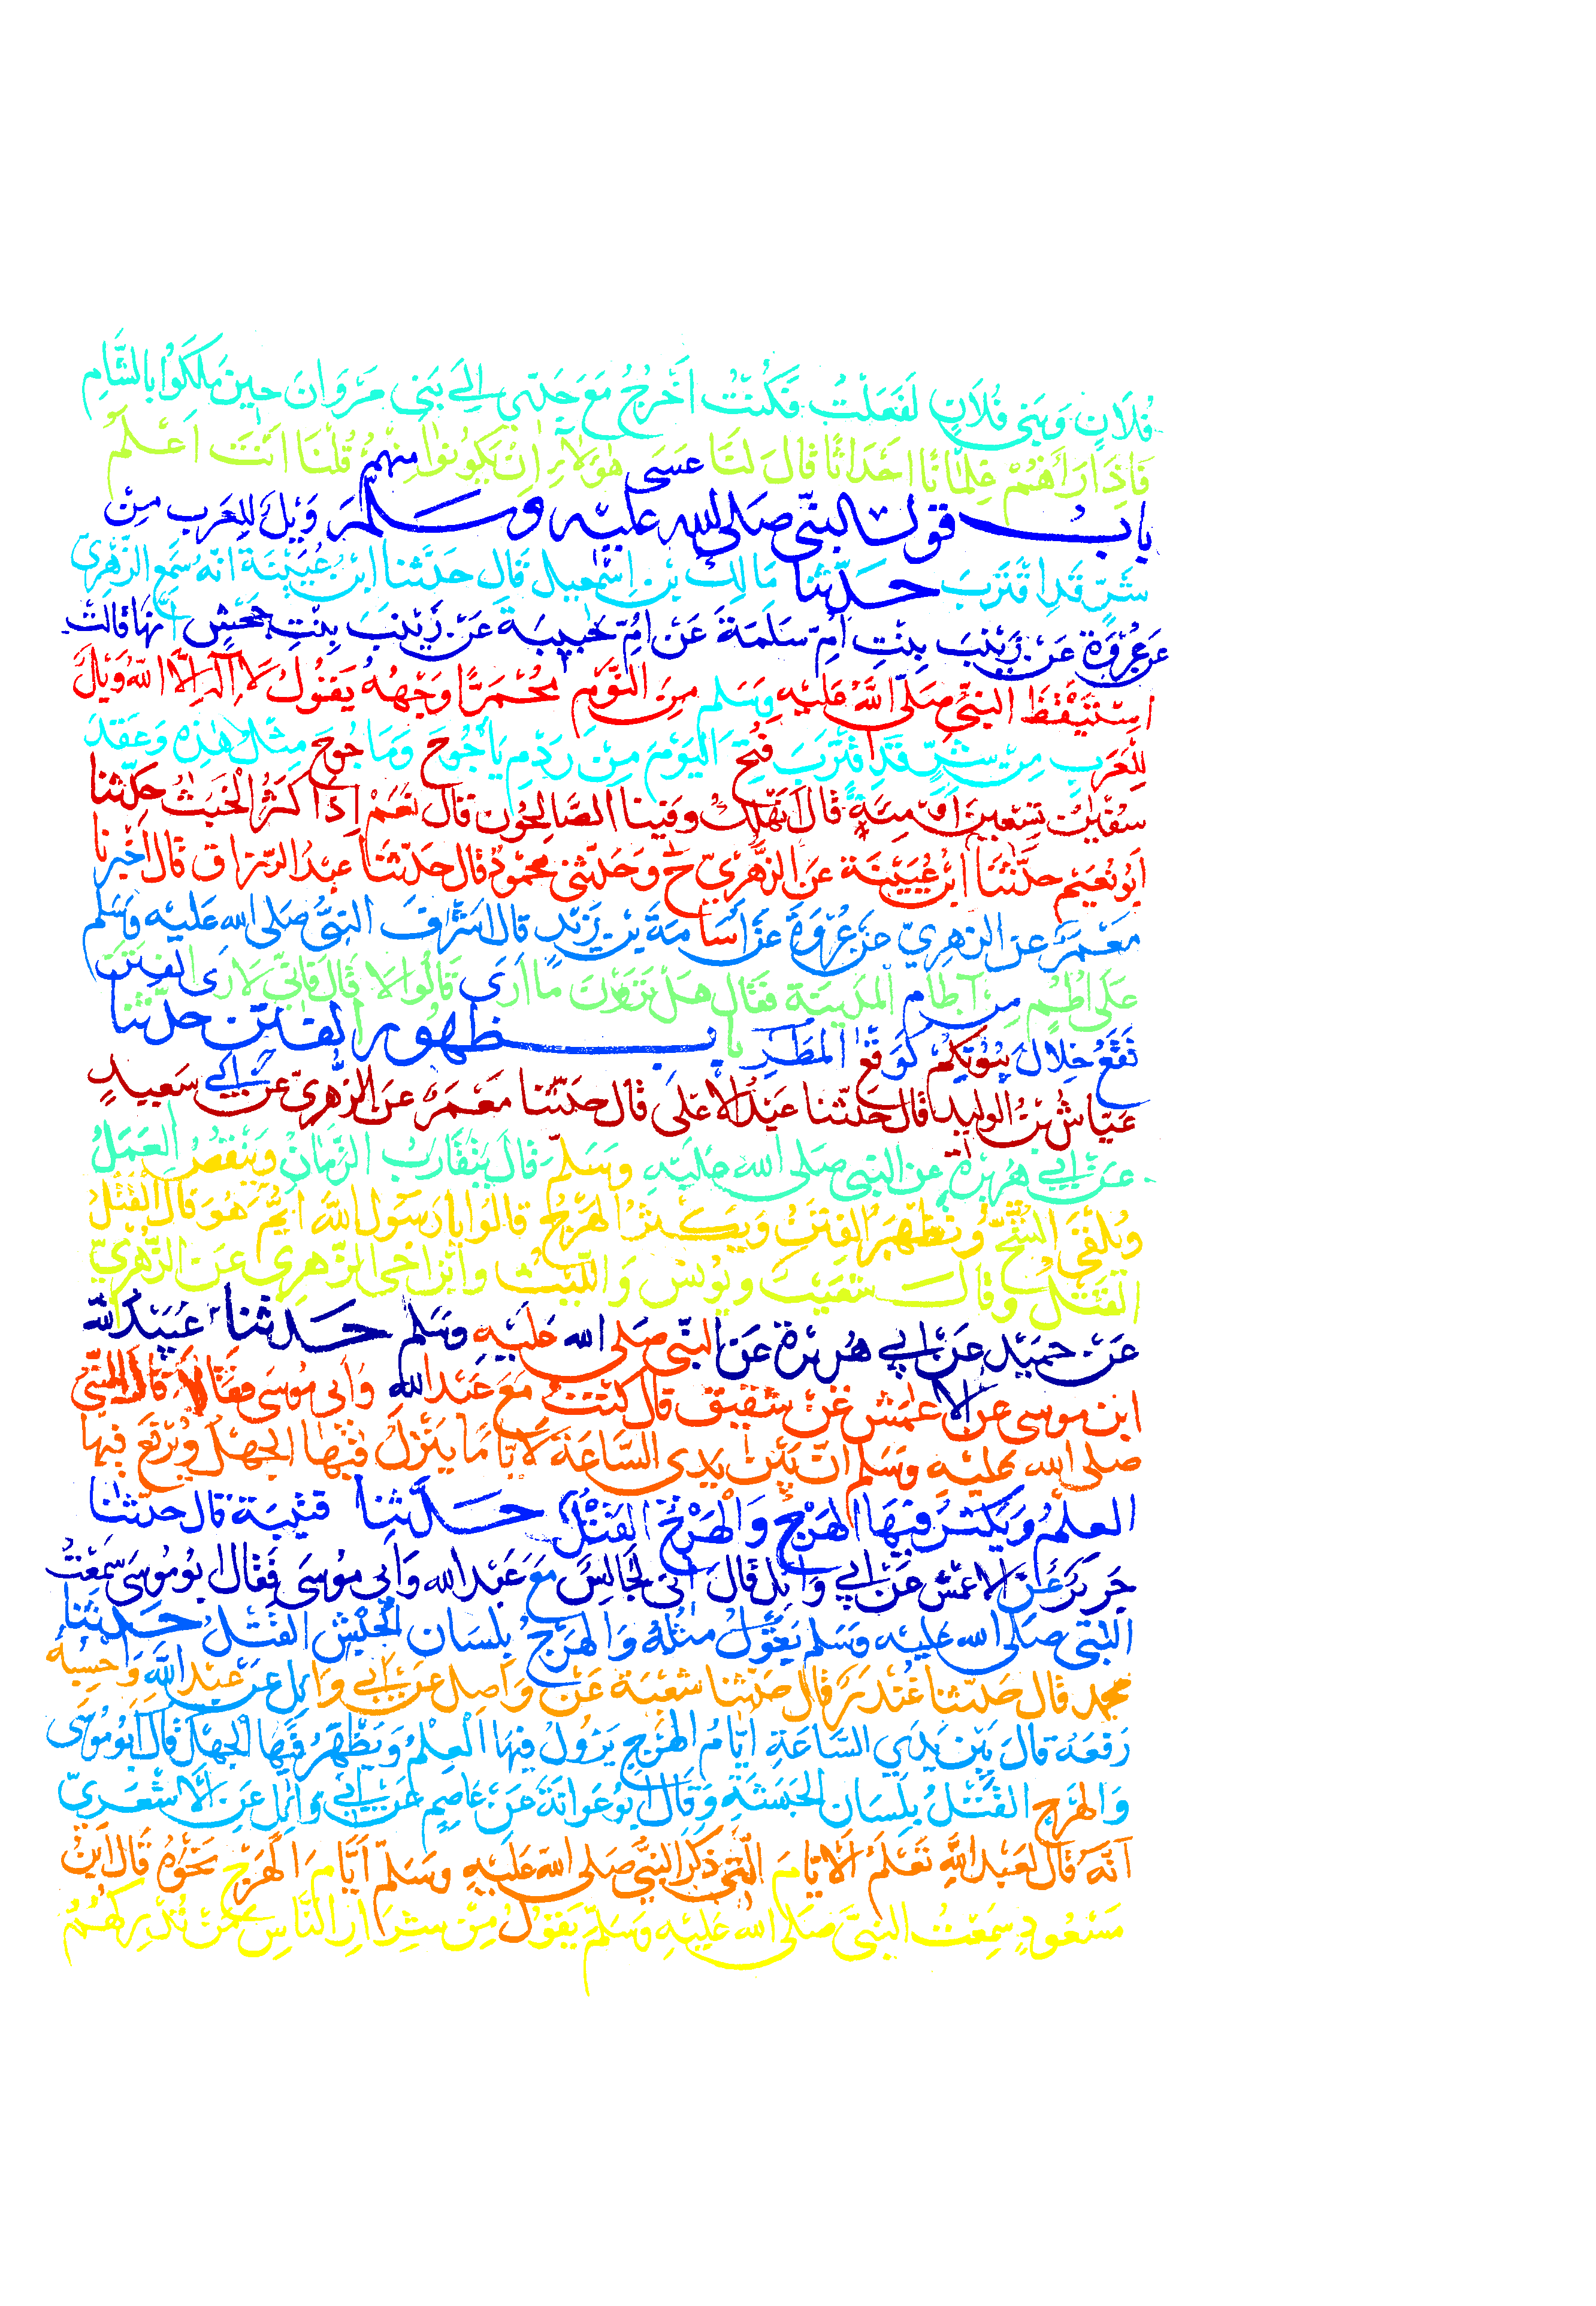 فُلَانٍ وَبَنِي فُلَانٍ لَفَعَلْتُ فَكُنْتُ أَخْرُجُ مَعَ جَدِّي إِلَى بَنِي مَرْوَانَ حِينَ مَلَكُوا بِالشَّامِ
فَإِذَا رَآهُمْ غِلْمَانًا أَحْدَاثًا قَالَ لَنَا عَسَى هَؤُلَاءِ أَنْ يَكُونُوا مِنْهُمْ قُلْنَا أَنْتَ أَعْلَمُ
باب قول النبي صلى الله عليه وسلم وَيْلٌ لِلْعَرَبِ مِنْ
شَرٍّ قَدِ اقْتَرَبَ حدثنا مَالِكُ بْنُ إِسْمَعِيلَ قَالَ حَدَّثَنَا ابْنُ عُيَيْنَةَ أَنَّهُ سَمِعَ الزُّهْرِيَّ
عَنْ عُرْوَةَ عَنْ زَيْنَبَ بِنْتِ أُمِّ سَلَمَةَ عَنْ أُمِّ حَبِيبَةَ عَنْ زَيْنَبَ بِنْتِ جَحْشٍ أَنَّهَا قَالَتْ
اسْتَيْقَظَ النَّبِيُّ صَلَّى اللَّهُ عَلَيْهِ وَسَلَّمَ مِنَ النَّوْمِ مُحْمَرًّا وَجْهُهُ يَقُولُ لَا إِلَهَ إِلَّا اللَّهُ وَيْلٌ
لِلْعَرَبِ مِنْ شَرٍّ قَدِ اقْتَرَبَ فُتِحَ الْيَوْمَ مِنْ رَدْمِ يَأْجُوجَ وَمَاجُوجَ مِثْلُ هَذِهِ وَعَقَدَ
سُفْيَنُ تِسْعِينَ أَوْ مِئَةً قَالَ أَنَهْلِكُ وَفِينَا الصَّالِحُونَ قَالَ نَعَمْ إِذَا كَثُرَ الْخَبَثُ حدثنا
أَبُو نُعَيْمٍ حَدَّثَنَا ابْنُ عُيَيْنَةَ عَنِ الزُّهْرِيِّ ح وَحَدَّثَنِي مَحْمُودٌ قَالَ حَدَّثَنَا عَبْدُ الرَّزَّاقِ قَالَ أَخْبَرَنَا
مَعْمَرٌ عَنِ الزُّهْرِيِّ عَنْ عُرْوَةَ عَنْ أُسَامَةَ بْنِ زَيْدٍ قَالَ أَشْرَفَ النَّبِيُّ صَلَّى اللَّهُ عَلَيْهِ وَسَلَّمَ
عَلَى أُطُمٍ مِنْ آطَامِ الْمَدِينَةِ فَقَالَ هَلْ تَرَوْنَ مَا أَرَى قَالُوا لَا قَالَ فَإِنِّي لَأَرَى الْفِتَنَ
تَقَعُ خِلَالَ بُيُوتِكُمْ كَوَقْعِ الْمَطَرِ باب ظهور الفتن حدثنا
عَيَّاشُ بْنُ الْوَلِيدِ قَالَ حَدَّثَنَا عَبْدُ الْأَعْلَى قَالَ حَدَّثَنَا مَعْمَرٌ عَنِ الزُّهْرِيِّ عَنْ سَعِيدٍ
عَنْ أَبِي هُرَيْرَةَ عَنِ النَّبِيِّ صَلَّى اللَّهُ عَلَيْهِ وَسَلَّمَ قَالَ يَتَقَارَبُ الزَّمَانُ وَيَنْقُصُ الْعَمَلُ
وَيُلْقَى الشُّحُّ وَتَظْهَرُ الْفِتَنُ وَيَكْثُرُ الْهَرْجُ قَالُوا يَا رَسُولَ اللَّهِ أَيُّمَ هُوَ قَالَ الْقَتْلُ
الْقَتْلُ وَقَالَ شُعَيْبٌ وَيُونُسُ وَاللَّيْثُ وَابْنُ أَخِي الزُّهْرِيِّ عَنِ الزُّهْرِيِّ
عَنْ حُمَيْدٍ عَنْ أَبِي هُرَيْرَةَ عَنِ النَّبِيِّ صَلَّى اللَّهُ عَلَيْهِ وَسَلَّمَ حدثنا عُبَيْدُ اللَّهِ
ابْنُ مُوسَى عَنِ الْأَعْمَشِ عَنْ شَقِيقٍ قَالَ كُنْتُ مَعَ عَبْدِ اللَّهِ وَأَبِي مُوسَى فَقَالَا قَالَ النَّبِيُّ
صَلَّى اللَّهُ عَلَيْهِ وَسَلَّمَ إِنَّ بَيْنَ يَدَيِ السَّاعَةِ لَأَيَّامًا يَنْزِلُ فِيهَا الْجَهْلُ وَيُرْفَعُ فِيهَا
الْعِلْمُ وَيَكْثُرُ فِيهَا الْهَرْجُ وَالْهَرْجُ الْقَتْلُ حدثنا قُتَيْبَةُ قَالَ حَدَّثَنَا
جَرِيرٌ عَنِ الْأَعْمَشِ عَنْ أَبِي وَائِلٍ قَالَ إِنِّي لَجَالِسٌ مَعَ عَبْدِ اللَّهِ وَأَبِي مُوسَى فَقَالَ أَبُو مُوسَى سَمِعْتُ
النَّبِيَّ صَلَّى اللَّهُ عَلَيْهِ وَسَلَّمَ يَقُولُ مِثْلَهُ وَالْهَرْجُ بِلِسَانِ الْحَبَشِ الْقَتْلُ حدثنا
مُحَمَّدٌ قَالَ حَدَّثَنَا غُنْدَرٌ قَالَ حَدَّثَنَا شُعْبَةُ عَنْ وَاصِلٍ عَنْ أَبِي وَائِلٍ عَنْ عَبْدِ اللَّهِ وَأَحْسِبُهُ
رَفَعَهُ قَالَ بَيْنَ يَدَيِ السَّاعَةِ أَيَّامُ الْهَرْجِ يَزُولُ فِيهَا الْعِلْمُ وَيَظْهَرُ فِيهَا الْجَهْلُ قَالَ أَبُو مُوسَى
وَالْهَرْجُ الْقَتْلُ بِلِسَانِ الْحَبَشَةِ وَقَالَ أَبُو عَوَانَةَ عَنْ عَاصِمٍ عَنْ أَبِي وَائِلٍ عَنِ الْأَشْعَرِيِّ
أَنَّهُ قَالَ لِعَبْدِ اللَّهِ تَعْلَمُ الْأَيَّامَ الَّتِي ذَكَرَ النَّبِيُّ صَلَّى اللَّهُ عَلَيْهِ وَسَلَّمَ أَيَّامَ الْهَرْجِ نَحْوَهُ قَالَ ابْنُ
مَسْعُودٍ سَمِعْتُ النَّبِيَّ صَلَّى اللَّهُ عَلَيْهِ وَسَلَّمَ يَقُولُ مِنْ شِرَارِ النَّاسِ مَنْ تُدْرِكُهُمُ